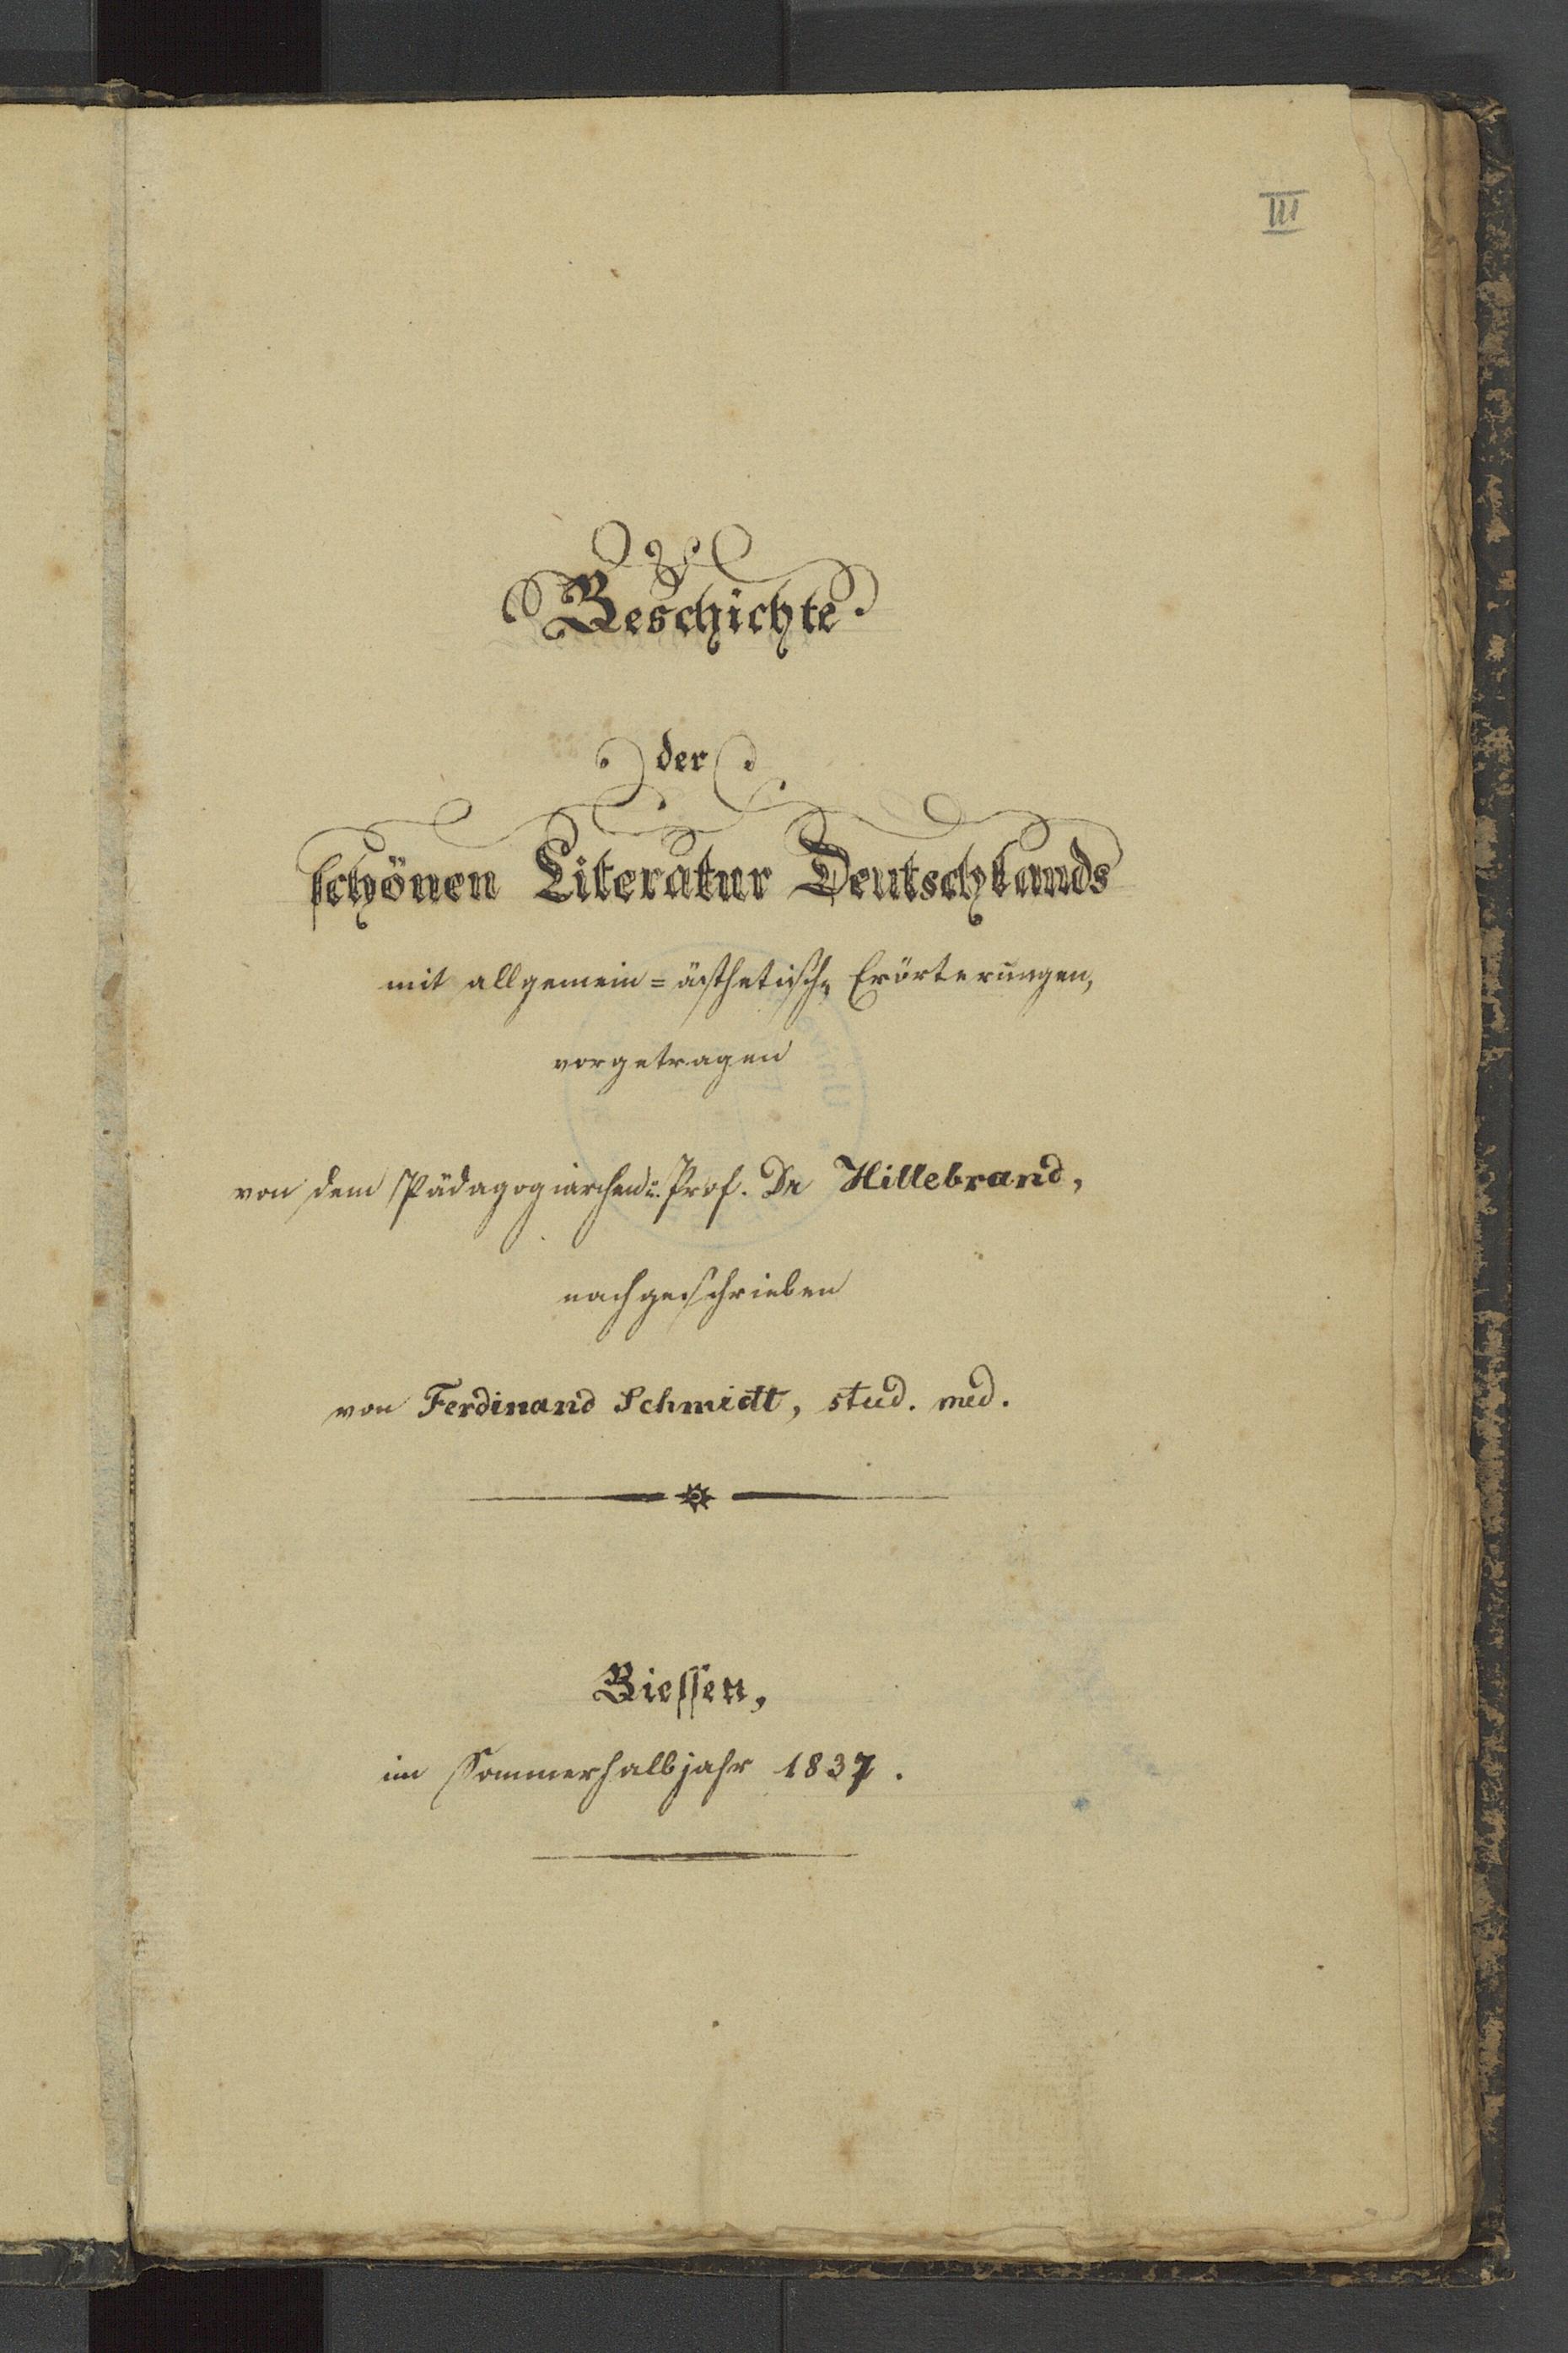 III
Geschichte
der
schönen Literatur Deutschlands
mit allgemein=ästhetischen Erörterungen,
vorgetragen
von dem Pädagogiarchen u. Prof. Dr Hillebrand,
nachgeschrieben
von Ferdinand Schmidt, stud. med.
Giessen,
im Sommerhalbjahr 1837.